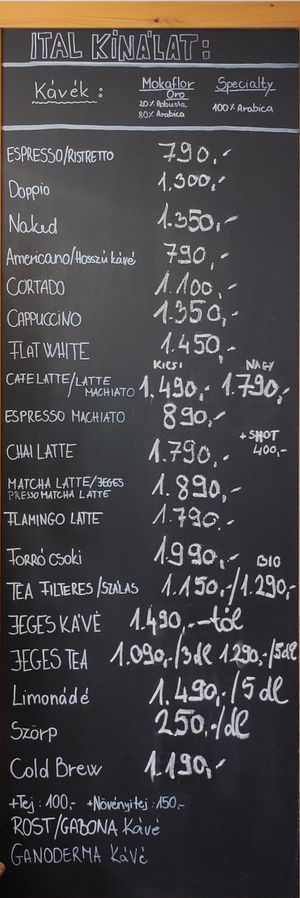 ITAL KÍNÁLAT:
Kávék: Mokaflor Oro Specialty
20% Robusta 80% Arabica 100% Arabica
ESPRESSO/RISTRETTO 790,-
Doppio 1.300,-
Naked 1.350,-
Americano/Hosszú kávé 790,-
CORTADO 1.100,-
CAPPUCCINO 1.350,-
FLAT WHITE 1.450,-
KICSI NAGY
CAFE LATTE/LATTE MACHIATO 1.490,- 1.790,-
ESPRESSO MACHIATO 890,-
+SHOT 400,-
CHAI LATTE 1.790,-
MATCHA LATTE/JEGES
PRESSO MATCHA LATTE 1.890,-
FLAMINGO LATTE 1.790,-
Forró Csoki 1.990,-
BIO
TEA FILTERES/SZÁLAS 1.150,-/1.290,-
JEGES KÁVÉ 1.490,--tól
JEGES TEA 1.090,-/3dl 1.290,-/5dl
Limonádé 1.490,-/5dl
Szörp 250,-/dl
Cold Brew 1.190,-
+Tej: 100,- +Növényitej: 150,-
ROST/GABONA Kávé
GANODERMA KÁVÉ